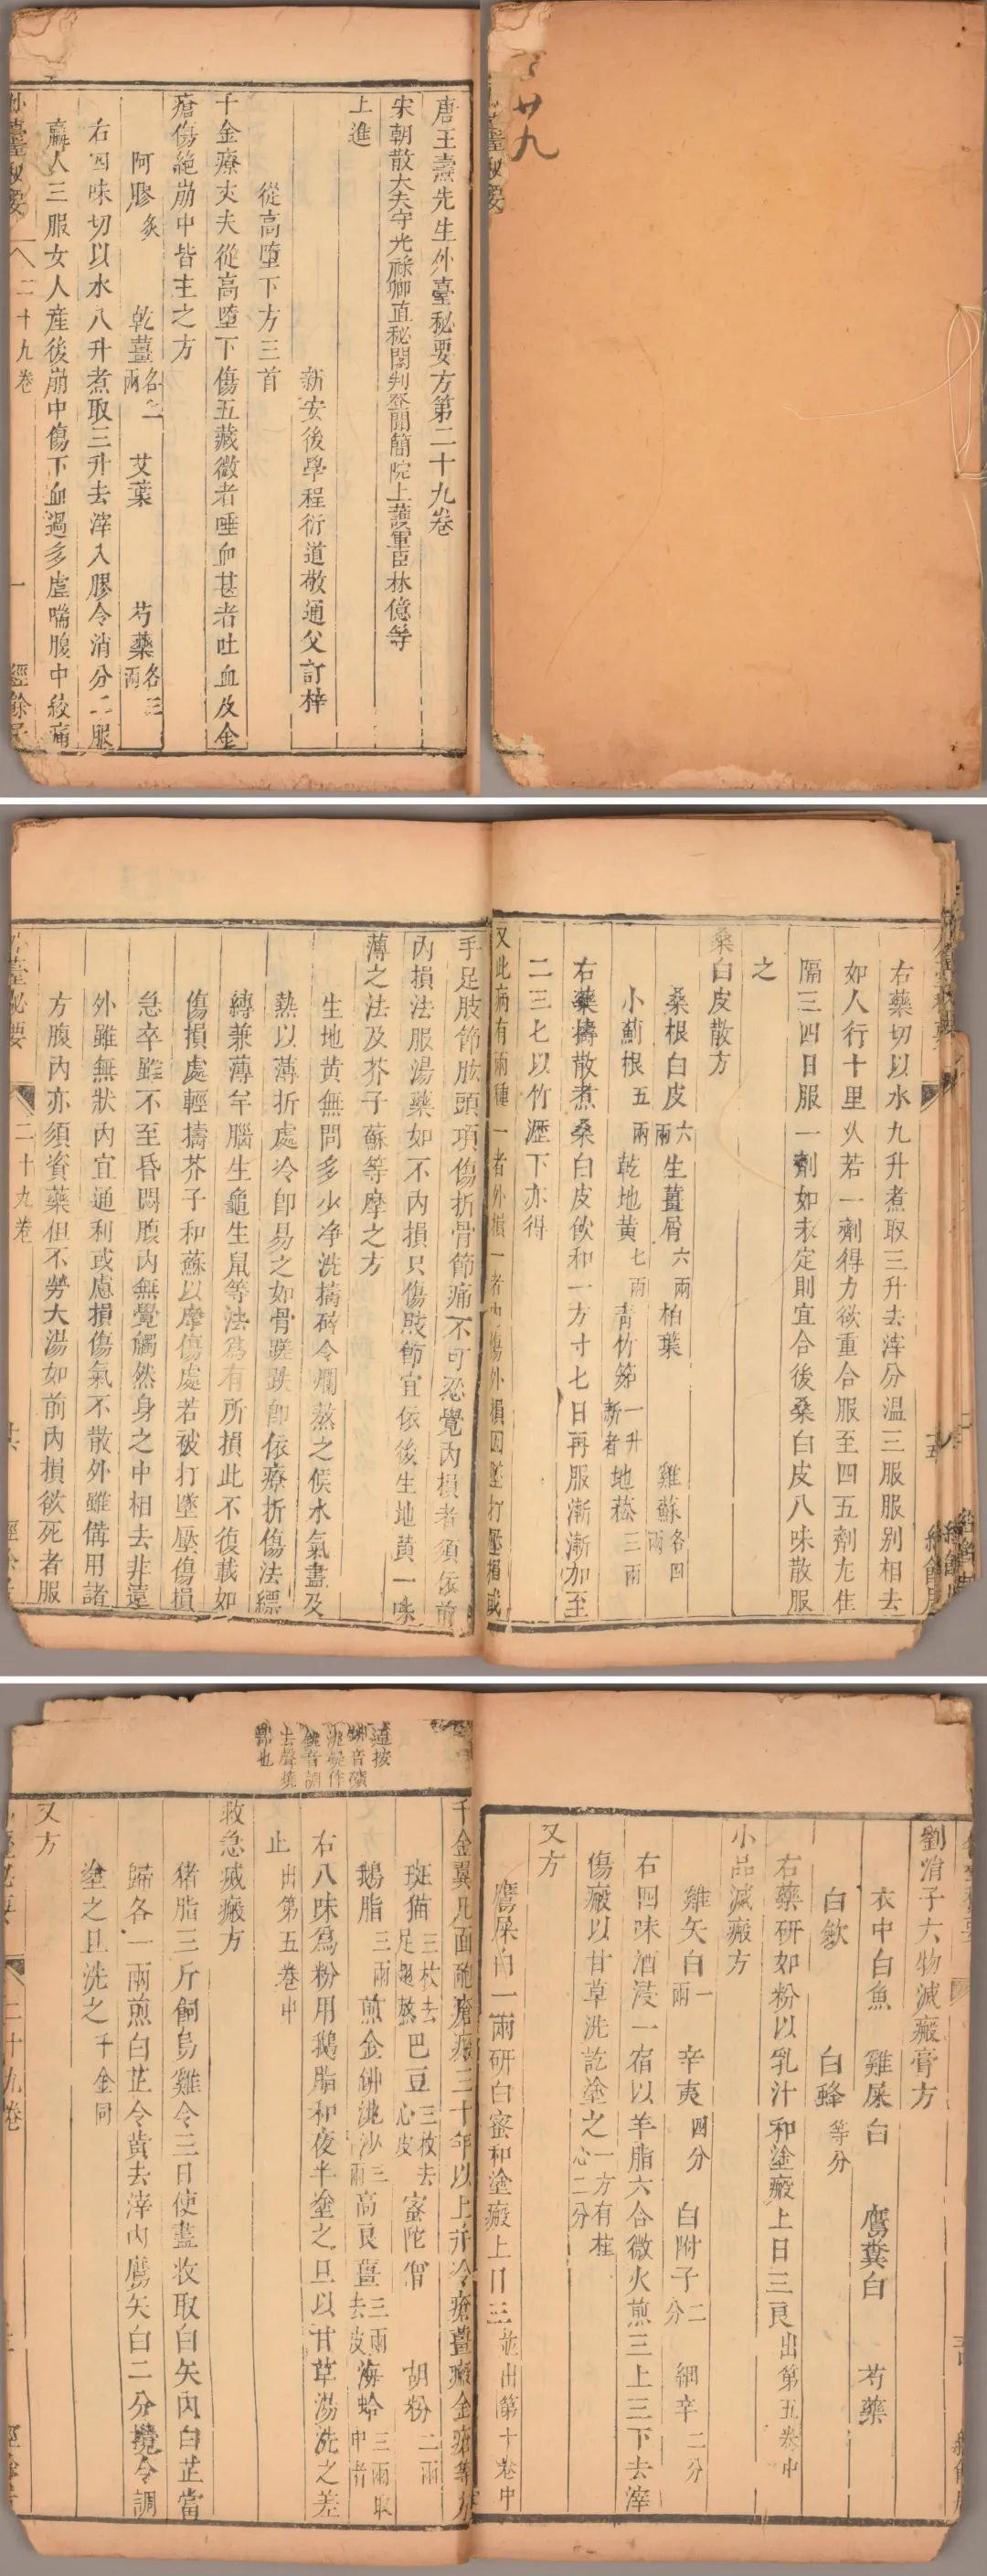 廿九
唐王燾先生外臺秘要方第二十九卷
宋朝散大夫守光祿卿直秘閣判登聞簡院上護軍臣林億等
上進
新安後學程衍道敬通父訂梓
從高墮下方三首
千金療丈夫從高墮下傷五藏微者唾血甚者吐血及金
瘡傷絶崩中皆主之方
阿膠炙 乾薑各二兩 艾葉 芍藥各三兩
右四味切以水八升煮取三升去滓入膠令消分二服
羸人三服女人産後崩中傷下血過多虛喘腹中絞痛
外臺秘要 二十九卷 一 經餘居
右藥切以水九升煮取三升去滓分温三服服别相去
如人行十里乆若一劑得力欲重合服至四五劑尤佳
隔三四日服一劑如未定則宜合後桑白皮八味散服
之
桑白皮散方
桑根白皮六兩 生薑屑六兩 柏葉 雞蘇各四兩
小薊根五兩 乾地黄七兩 青竹茹一升新者 地菘三兩
右藥擣散煮桑白皮飲和一方寸七日再服漸漸加至
二三七以竹瀝下亦得
又此病有兩種一者外損一者内傷外損因墜打壓損或
手足肢節肱頭項傷折骨節痛不可忍覺内損者須依前
内損法服湯藥如不内損只傷肢節宜依後生地黄一味
薄之法及芥子蘇等摩之方
生地黄無問多少净洗擣碎令爛蒸之候水氣盡及
熱以薄折處冷卽易之如骨蹉跌卽依療折傷法縹
縳兼薄牟腦生龜生鼠等法爲有所損此不復載如
傷損處輕擣芥子和蘇以摩傷處若被打墜壓傷損
急卒雖不至昏悶腹内無覺觸然身之中相去非遠
外雖無狀内宜通利或慮損傷氣不散外雖備用諸
方腹内亦須資藥但不勞大湯如前内損欲死者服
外臺秘要 二十九卷
劉涓子六物滅瘢膏方
衣中白魚 雞屎白 鷹糞白 芍藥
白斂 白蜂等分
右藥研如粉以乳汁和塗瘢上日三良出第五卷中
小品滅瘢方
雞矢白一兩 辛夷四分 白附子二分 細辛二分
右四味酒浸一宿以羊脂六合微火煎三上三下去滓
傷瘢以甘草洗訖塗之一方有桂心二分
又方
鷹屎白一兩研白蜜和塗瘢上日三並出第十卷中
千金翼凡面皰瘡瘢三十年以上并冷瘡薑瘢金瘡等方
斑猫三枚去足翅熬 巴豆三枚去心皮 蜜陀僧 胡粉二兩
鵝脂三兩煎 金鉚洮沙三兩 高良薑三兩去皮 海蛤三兩取中者
右八味爲粉用鵝脂和夜半塗之旦以甘草湯洗之差
止出第五卷中
救急滅瘢方
猪脂三斤飼烏雞令三日使盡收取白矢内白芷當
歸各一兩煎白芷令黄去滓内鷹矢白二分攪令調
塗之旦洗之千金同
又方
二十九卷